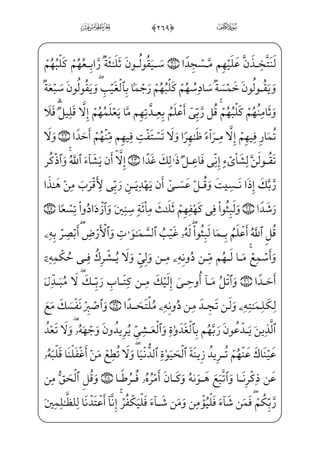 سورة الكهف ﴿٢٦٩﴾ الجزء الخامس عشر
لَنَتَّخِذَنَّ عَلَيْهِم مَّسْجِدًا ﴿٢١﴾ سَيَقُولُونَ ثَلَٰثَةٌ رَّابِعُهُمْ كَلْبُهُمْ
وَيَقُولُونَ خَمْسَةٌ سَادِسُهُمْ كَلْبُهُمْ رَجْمًۢا بِٱلْغَيْبِ ۖ وَيَقُولُونَ سَبْعَةٌ
وَثَامِنُهُمْ كَلْبُهُمْ ۚ قُل رَّبِّىٓ أَعْلَمُ بِعِدَّتِهِم مَّا يَعْلَمُهُمْ إِلَّا قَلِيلٌ ۗ فَلَا
تُمَارِ فِيهِمْ إِلَّا مِرَآءً ظَٰهِرًا وَلَا تَسْتَفْتِ فِيهِم مِّنْهُمْ أَحَدًا ﴿٢٢﴾ وَلَا
تَقُولَنَّ لِشَا۟ىْءٍ إِنِّى فَاعِلٌ ذَٰلِكَ غَدًا ﴿٢٣﴾ إِلَّآ أَن يَشَآءَ ٱللَّهُ ۚ وَٱذْكُر
رَّبَّكَ إِذَا نَسِيتَ وَقُلْ عَسَىٰٓ أَن يَهْدِيَنِ رَبِّى لِأَقْرَبَ مِنْ هَٰذَا
رَشَدًا ﴿٢٤﴾ وَلَبِثُوا۟ فِى كَهْفِهِمْ ثَلَٰثَ مِا۟ئَةٍ سِنِينَ وَٱزْدَادُوا۟ تِسْعًا ﴿٢٥﴾
قُلِ ٱللَّهُ أَعْلَمُ بِمَا لَبِثُوا۟ ۖ لَهُۥ غَيْبُ ٱلسَّمَٰوَٰتِ وَٱلْأَرْضِ ۖ أَبْصِرْ بِهِۦ
وَأَسْمِعْ ۚ مَا لَهُم مِّن دُونِهِۦ مِن وَلِىٍّ وَلَا يُشْرِكُ فِى حُكْمِهِۦٓ
أَحَدًا ﴿٢٦﴾ وَٱتْلُ مَآ أُوحِىَ إِلَيْكَ مِن كِتَابِ رَبِّكَ ۖ لَا مُبَدِّلَ
لِكَلِمَٰتِهِۦ وَلَن تَجِدَ مِن دُونِهِۦ مُلْتَحَدًا ﴿٢٧﴾ وَٱصْبِرْ نَفْسَكَ مَعَ
ٱلَّذِينَ يَدْعُونَ رَبَّهُم بِٱلْغَدَوٰةِ وَٱلْعَشِىِّ يُرِيدُونَ وَجْهَهُۥ ۖ وَلَا تَعْدُ
عَيْنَاكَ عَنْهُمْ تُرِيدُ زِينَةَ ٱلْحَيَوٰةِ ٱلدُّنْيَا ۖ وَلَا تُطِعْ مَنْ أَغْفَلْنَا قَلْبَهُۥ
عَن ذِكْرِنَا وَٱتَّبَعَ هَوَىٰهُ وَكَانَ أَمْرُهُۥ فُرُطًا ﴿٢٨﴾ وَقُلِ ٱلْحَقُّ مِن
رَّبِّكُمْ ۖ فَمَن شَآءَ فَلْيُؤْمِن وَمَن شَآءَ فَلْيَكْفُرْ ۚ إِنَّآ أَعْتَدْنَا لِلظَّٰلِمِينَ